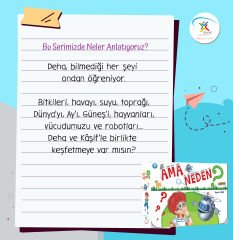 Bu Serimizde Neler Anlatıyoruz?
Deha, bilmediği her şeyi
ondan öğreniyor.
Bitkileri, havayı, suyu, toprağı,
Dünya'yı, Ay'ı, Güneş'i, hayvanları,
vücudumuzu ve robotları...
Deha ve Kâşif'le birlikte
keşfetmeye var mısın?
AMA
NEDEN?